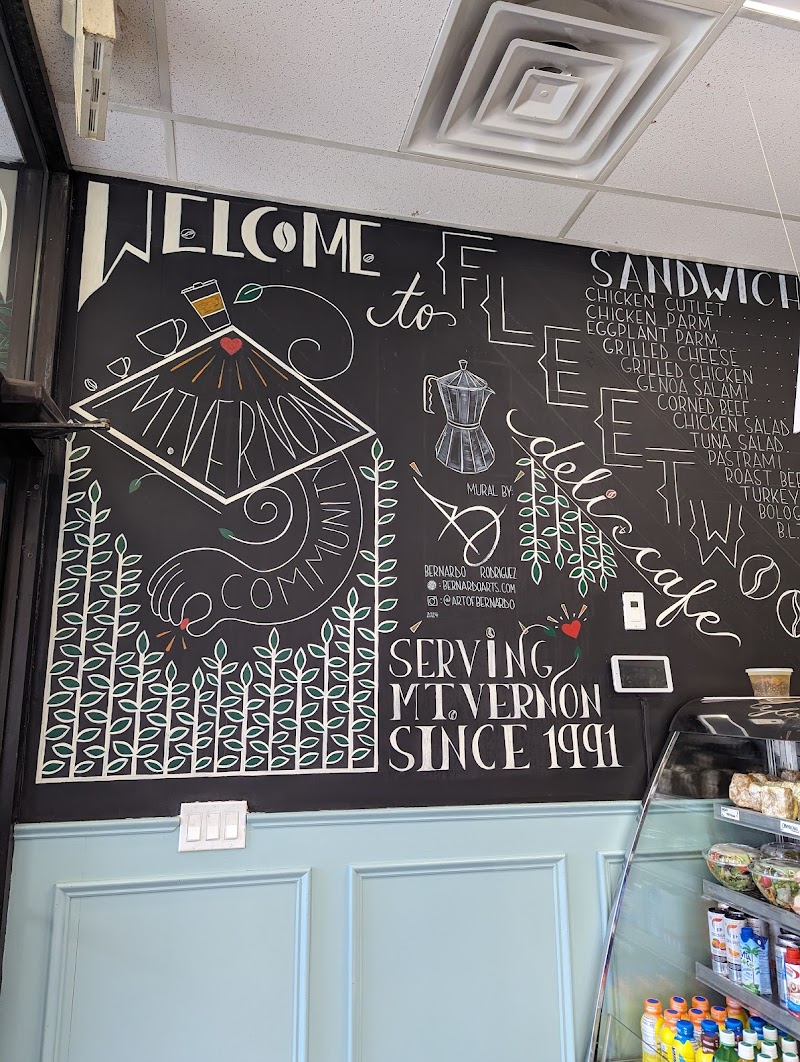 WELCOME
to
FLEETW
deli & cafe
MT.VERNON
COMMUNITY
MURAL BY:
BERNARDO RODRIGUEZ
: BERNARDOARTS.COM
: @ARTOFBERNARDO
2024
SERVING
MT.VERNON
SINCE 1991
SANDWICH
CHICKEN CUTLET
CHICKEN PARM
EGGPLANT PARM
GRILLED CHEESE
GRILLED CHICKEN
GENOA SALAMI
CORNED BEEF
CHICKEN SALAD
TUNA SALAD
PASTRAMI
ROAST BEE
TURKEY
BOLOG
B.L.